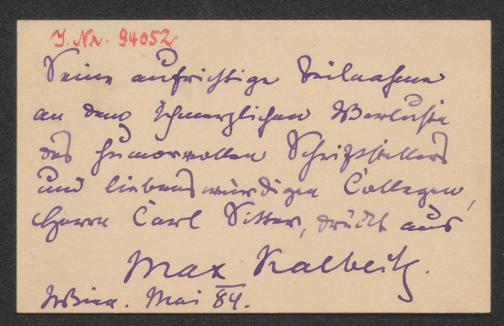 J. Nr. 94052
Seine aufrichtige Teilnahme
an dem schmerzlichen Verluste
des humorvollen Schriftstellers
und liebenswürdigen Collegen,
Herrn Carl Sitter, drückt aus
Max Kalbeck.
Wien. Mai 84.